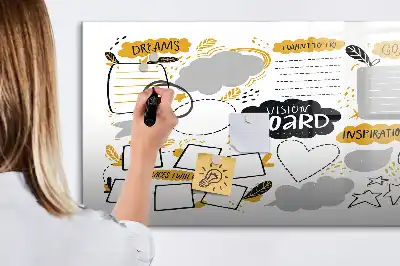 DREAMS
I WANT TO
GO
VISION
BOARD
INSPIRATION